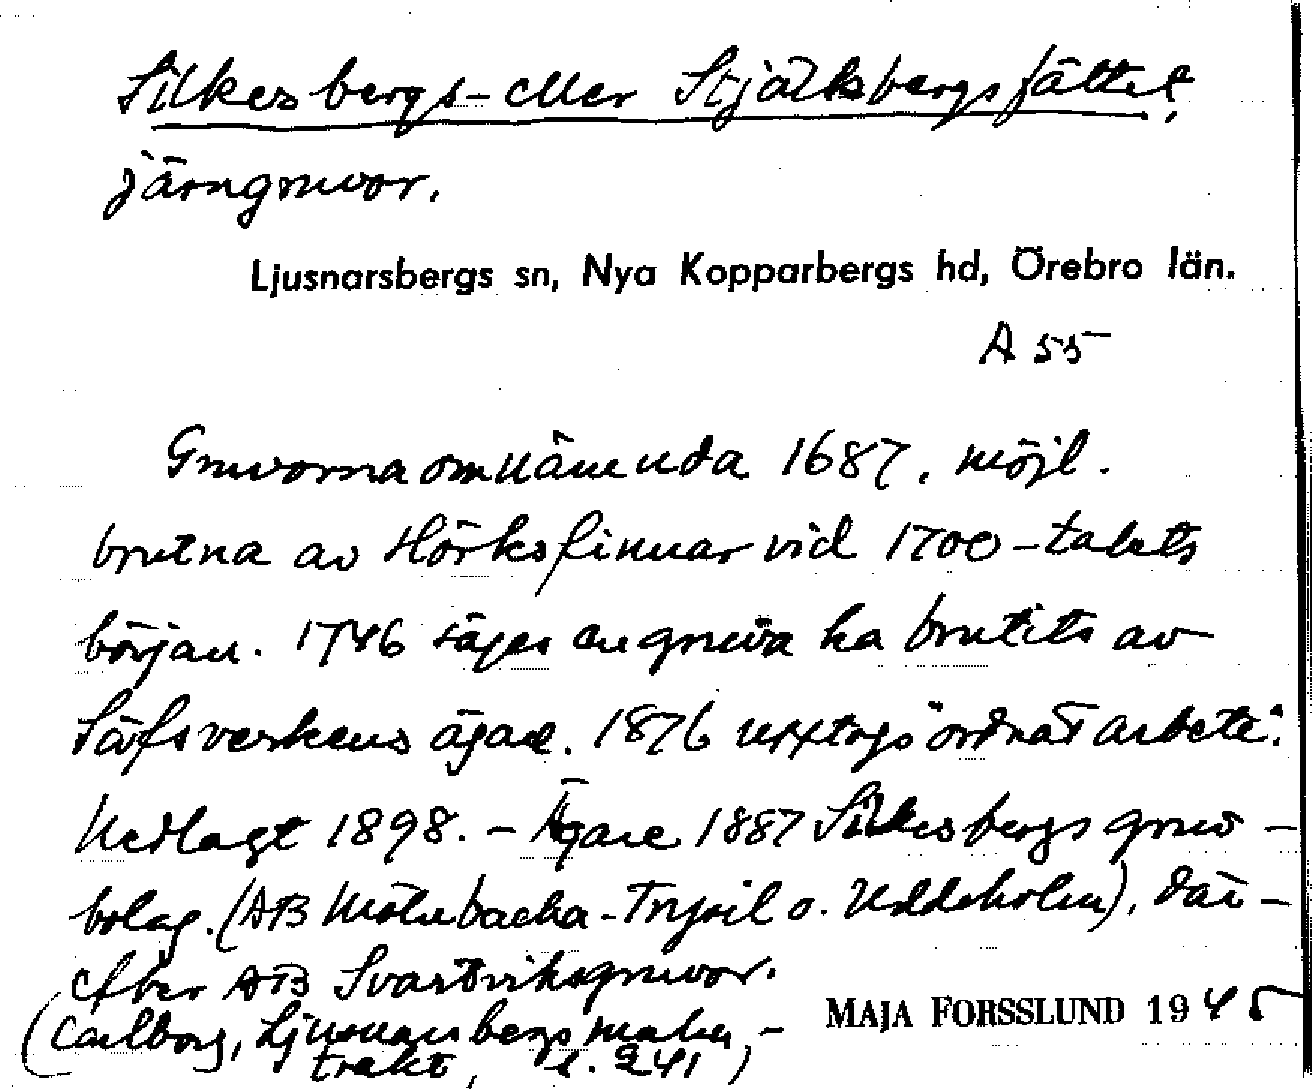 Silkesbergs- eller Stjälksbergsfältet,
järngruvor.
Ljusnarsbergs sn, Nya Kopparbergs hd, Örebro län.
A 55
Gruvorna omnämnda 1687, möjl.
brutna av Hörksfinnar vid 1700-talets
början. 1746 säges en gruva ha brutits av
Säfsverkens ägare. 1876 upptogs "ordnat arbete".
Nedlagt 1898. - Ägare 1887 Silkesbergs gruv-
bolag. (AB Mölnbacka-Trysil o. Uddeholm), där-
efter AB Svartviksgruvor.
(Carlborg, Ljusnarsbergs malm-
trakt, s. 241)
MAJA FORSSLUND 1945